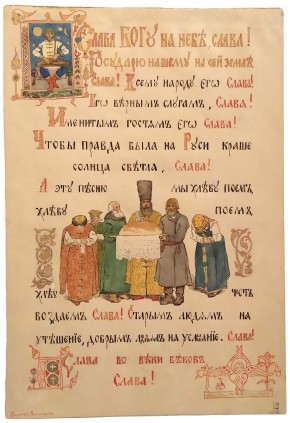 Слава Богу на небѣ, слава!
Государю нашему на сей землѣ
Слава! Всему народу его Слава!
Его вѣрнымъ слугамъ, Слава!
Именитымъ гостямъ его Слава!
Чтобы правда была на Руси краше
солнца свѣтла, Слава!
А эту пѣсню мы хлѣбу поемъ,
хлѣбу поемъ,
хлѣбу честь
воздаемъ Слава! Старымъ людямъ на
утѣшение, добрымъ людямъ на услышание. Слава!
Слава во вѣки вѣковъ
Слава!